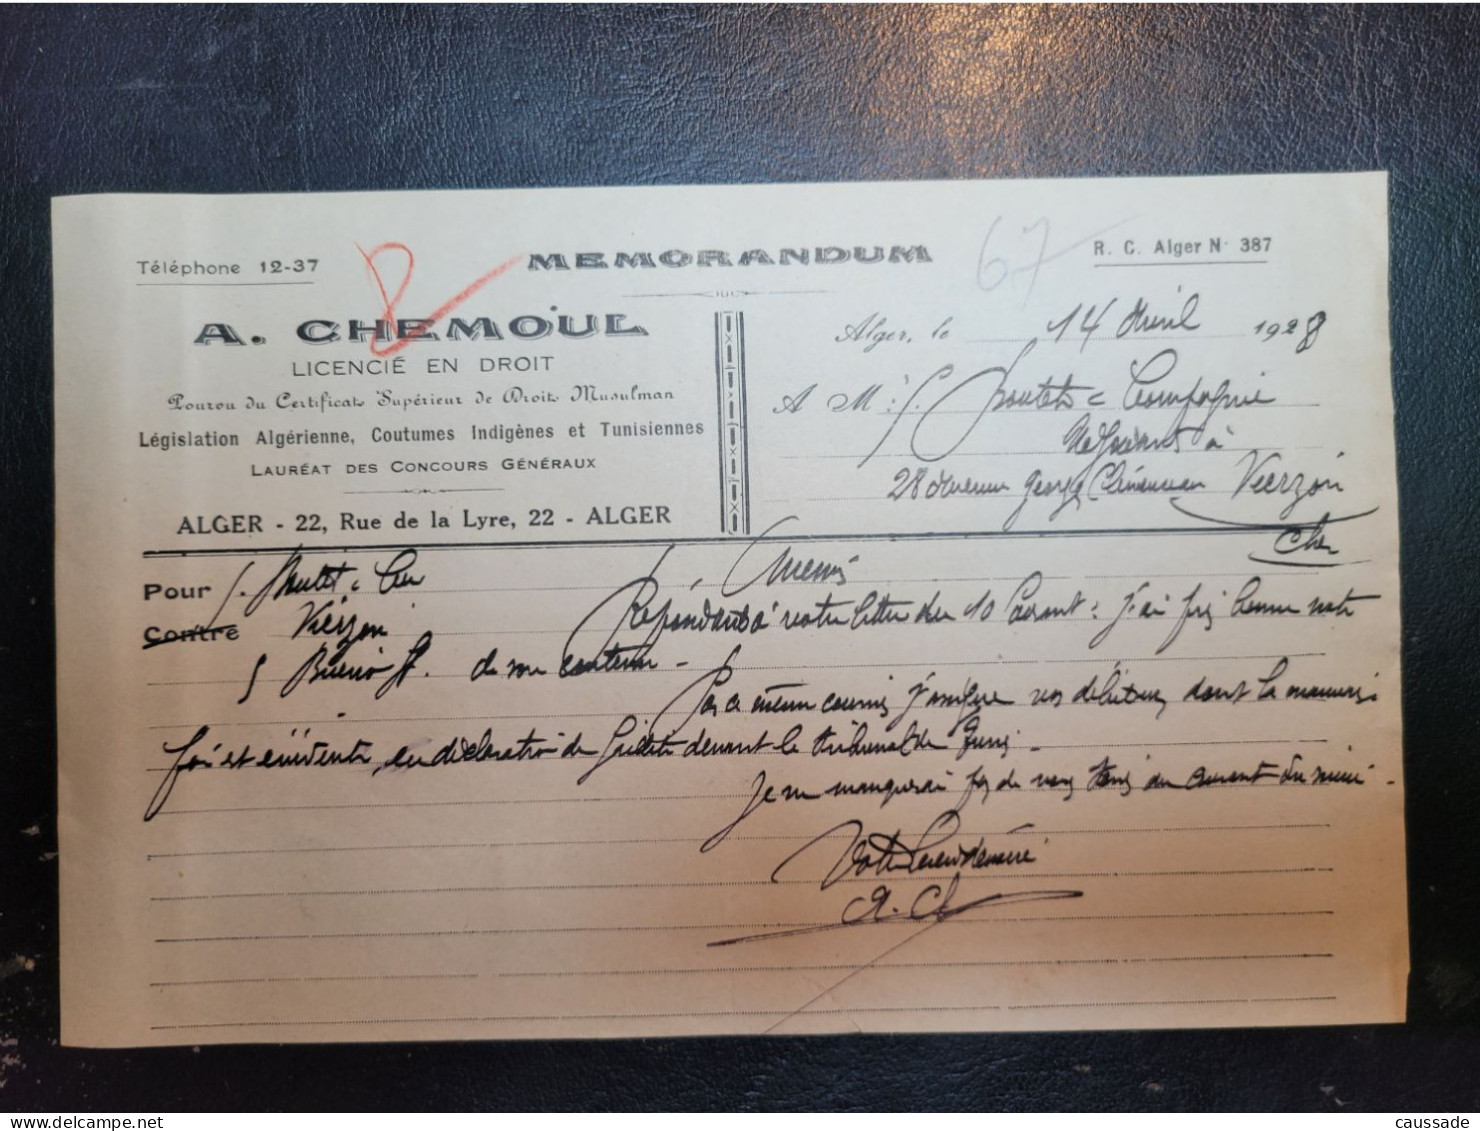 MEMORANDUM
67
R. C. Alger N° 387
Téléphone 12-37
A. CHEMOUL
LICENCIÉ EN DROIT
Pourvu du Certificat Supérieur de Droit Musulman
Législation Algérienne, Coutumes Indigènes et Tunisiennes
LAURÉAT DES CONCOURS GÉNÉRAUX
ALGER - 22, Rue de la Lyre, 22 - ALGER
Alger, le 14 Avril 1928
A M. Compagnie
Négociants à
28 Avenue Georges Clémenceau Vierzon
Cher
Pour
Contre
Vierzon
Messrs
Répondant à votre lettre du 10 Courant : j'ai pris bonne note
de son contenu -
Par ce même courrier j'assigne vos débiteurs, dont la mauvaise
foi est évidente, en déclaration de faillite devant le tribunal de
Je ne manquerai pas de vous tenir au courant du suivi -
Votre bien dévoué
A. Ch
caussade